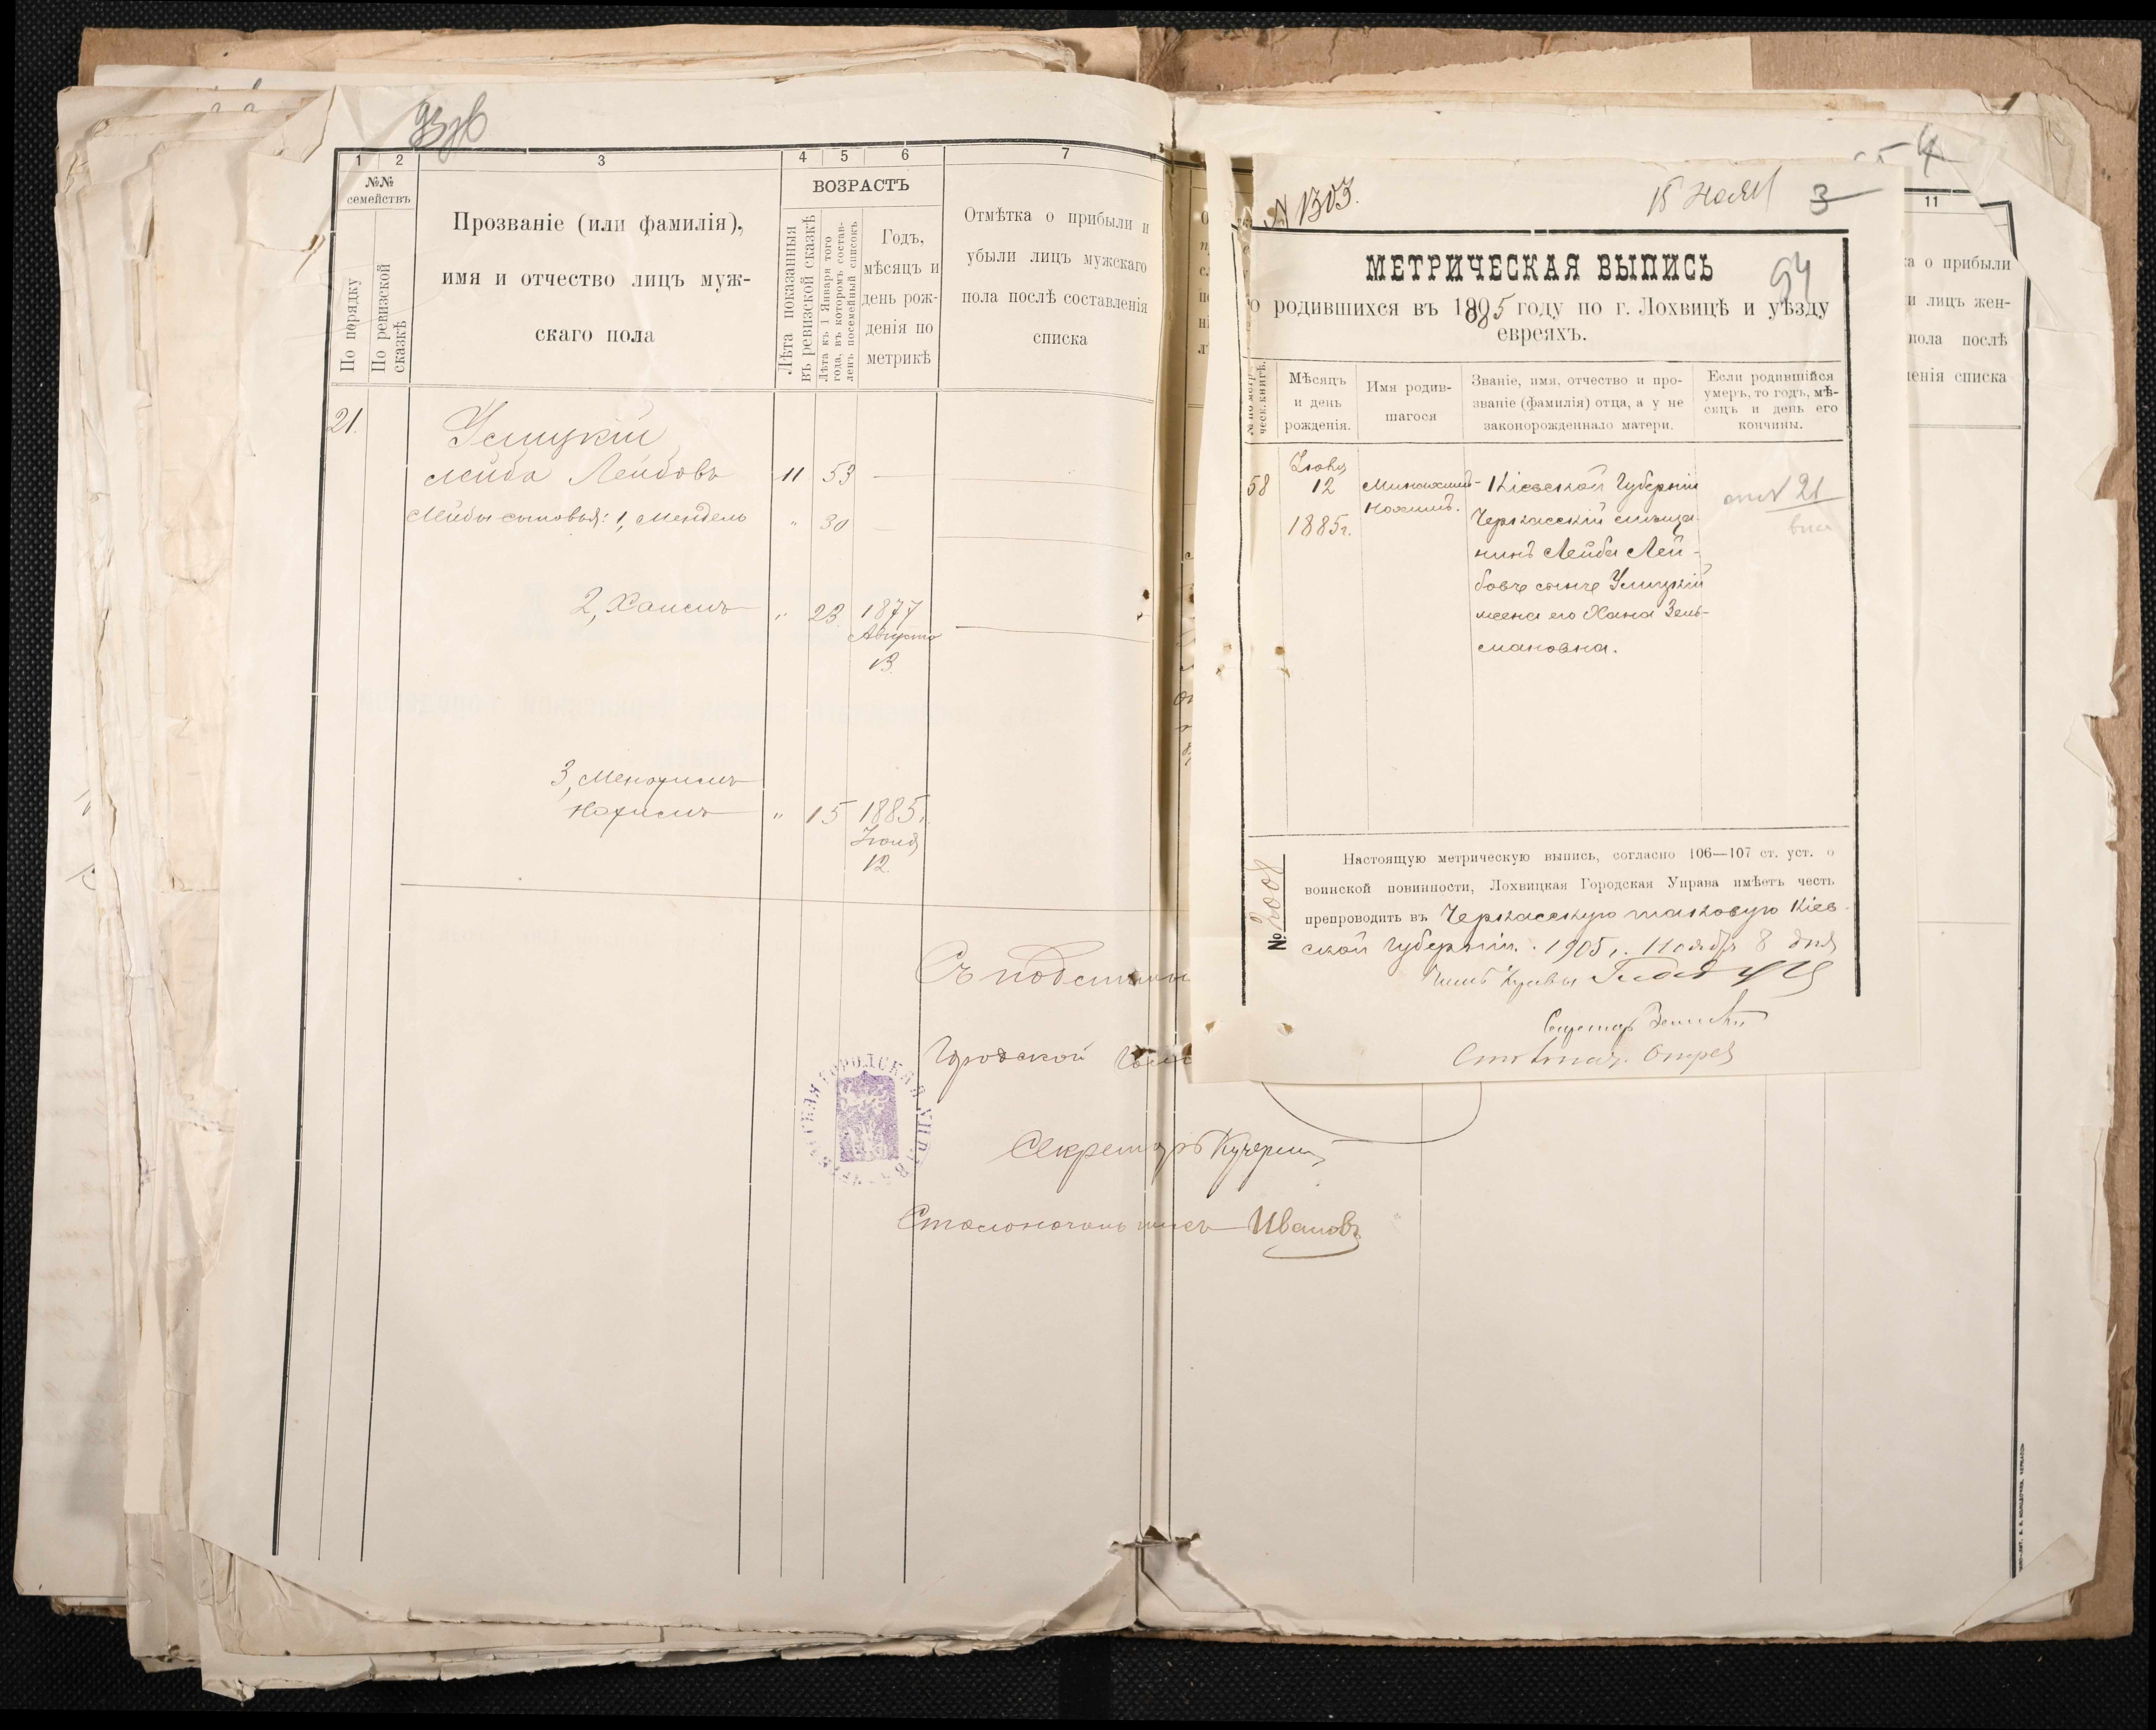 1 2 3 4 5 6 7
№№ семействъ
По порядку
По ревизской сказкѣ
Прозваніе (или фамилія),
имя и отчество лицъ муж-
скаго пола
ВОЗРАСТЪ
Лѣта показанныя въ ревизской сказкѣ
Лѣта къ 1 Января того года, въ которомъ состав- ленъ посемейный списокъ
Годъ,
мѣсяцъ и
день рож-
денія по
метрикѣ
Отмѣтка о прибыли и
убыли лицъ мужскаго
пола послѣ составленія
списка
21.
Усмицкій
Лейба Лейбовъ 11 53 —
Лейбы сыновья: 1, Мендель " 30 —
2, Хаимъ " 23 1877
Августа
13.
3, Менахимъ
Нахимъ " 15 1885 г.
Іюля
12.
Съ подлин
Городской
Секретарь
Столоначальникъ Ивановъ
11
а о прибыли
и лицъ жен-
пола послѣ
ленія списка
№ 1303.
15 Нояб
3
МЕТРИЧЕСКАЯ ВЫПИСЬ
94
о родившихся въ 1885 году по г. Лохвицѣ и уѣзду
евреяхъ.
Мѣсяцъ
и день
рожденія.
Имя родив-
шагося
Званіе, имя, отчество и про-
званіе (фамилія) отца, а у не
законорожденнало матери.
Если родившійся
умеръ, то годъ, мѣ-
сяцъ и день его
кончины.
58
Іюля
12
1885 г.
Нохимъ.
Кіевской Губерніи
Черкасскій мѣща-
нинъ Лейба Лей-
бовъ сынъ Усмицкій
жена его Хана Зель-
мановна.
21
№ 2008
Настоящую метрическую выпись, согласно 106—107 ст. уст. о
воинской повинности, Лохвицкая Городская Управа имѣетъ честь
препроводить въ Черкасскую таковую Кіев-
ской Губерніи. 1905 г. Ноября 8 дня
Членъ Управы
Секретарь